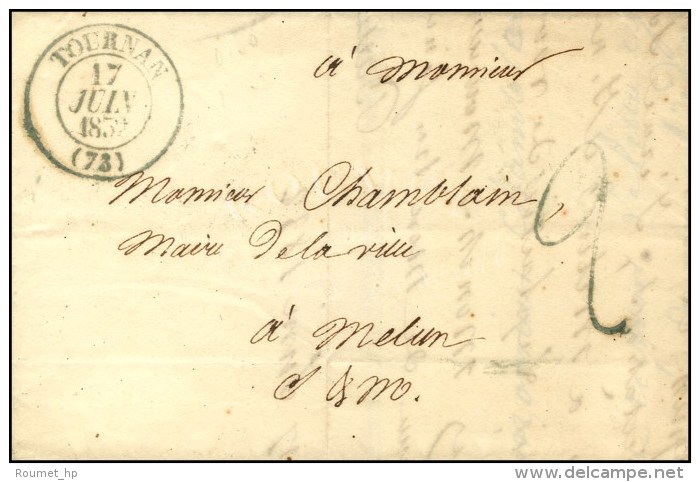 TOURNAN
17
JUIN
183
(73)
à Monsieur
Monsieur Chamblain,
Maire de la ville
à Melun
S & M.
2
Roumet_hp
www.delcampe.net